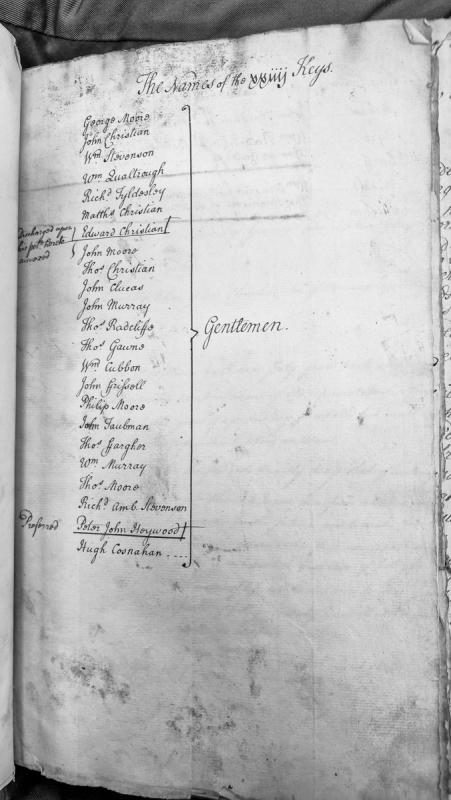 The Names of the xxiiij Keys.
George Moore
John Christian
Wm. Stevenson
Wm. Qualtrough
Richd. Tyldesley
Matths. Christian
Discharged upon
his petn.
Edward Christian
John Moore
Thos. Christian
John Clucas
John Murray
Thos. Radcliffe
Gentlemen.
Thos. Gawne
Wm. Cubbon
John ffrissell
Philip Moore
John Taubman
Thos. ffargher
Wm. Murray
Thos. Moore
Richd. Amb. Stevenson
Preferred
Peter John Heywood
Hugh Cosnahan ....